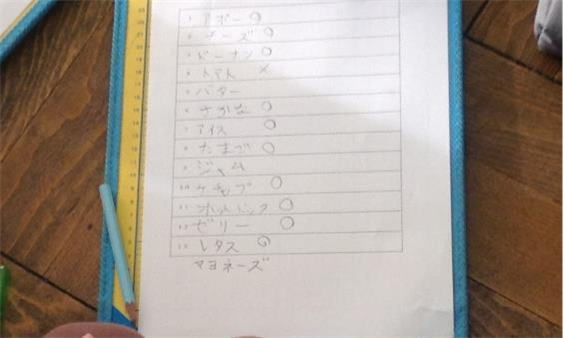 1 アボー ○
2 チーズ ○
3 ドーナツ ○
4 トマト ×
5 バター
6 さかな ○
7 アイス ○
8 たまご ○
9 ジャム
10 ケチャプ ○
11 ホットドック ○
12 ゼリー ○
13 レタス ○
マヨネーズ